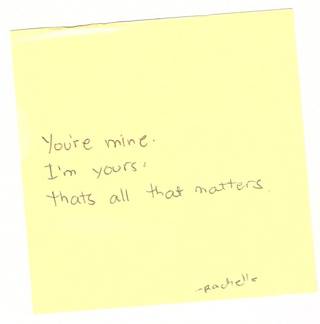 You're mine.
I'm yours.
thats all that matters.
-Rachelle